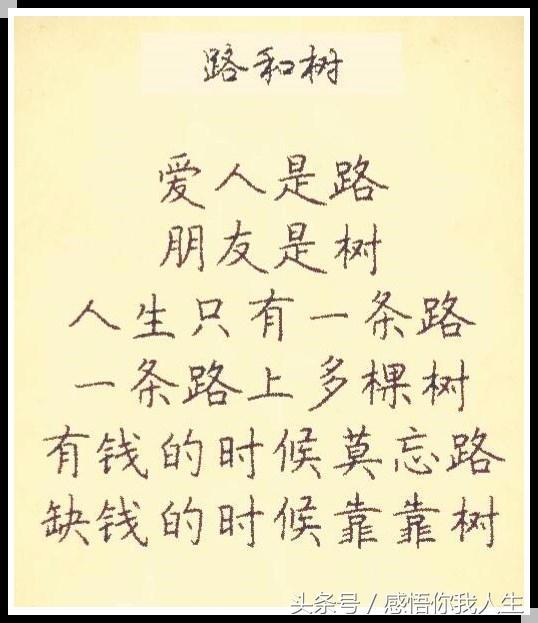 路和树
爱人是路
朋友是树
人生只有一条路
一条路上多棵树
有钱的时候莫忘路
缺钱的时候靠靠树
头条号/感悟你我人生